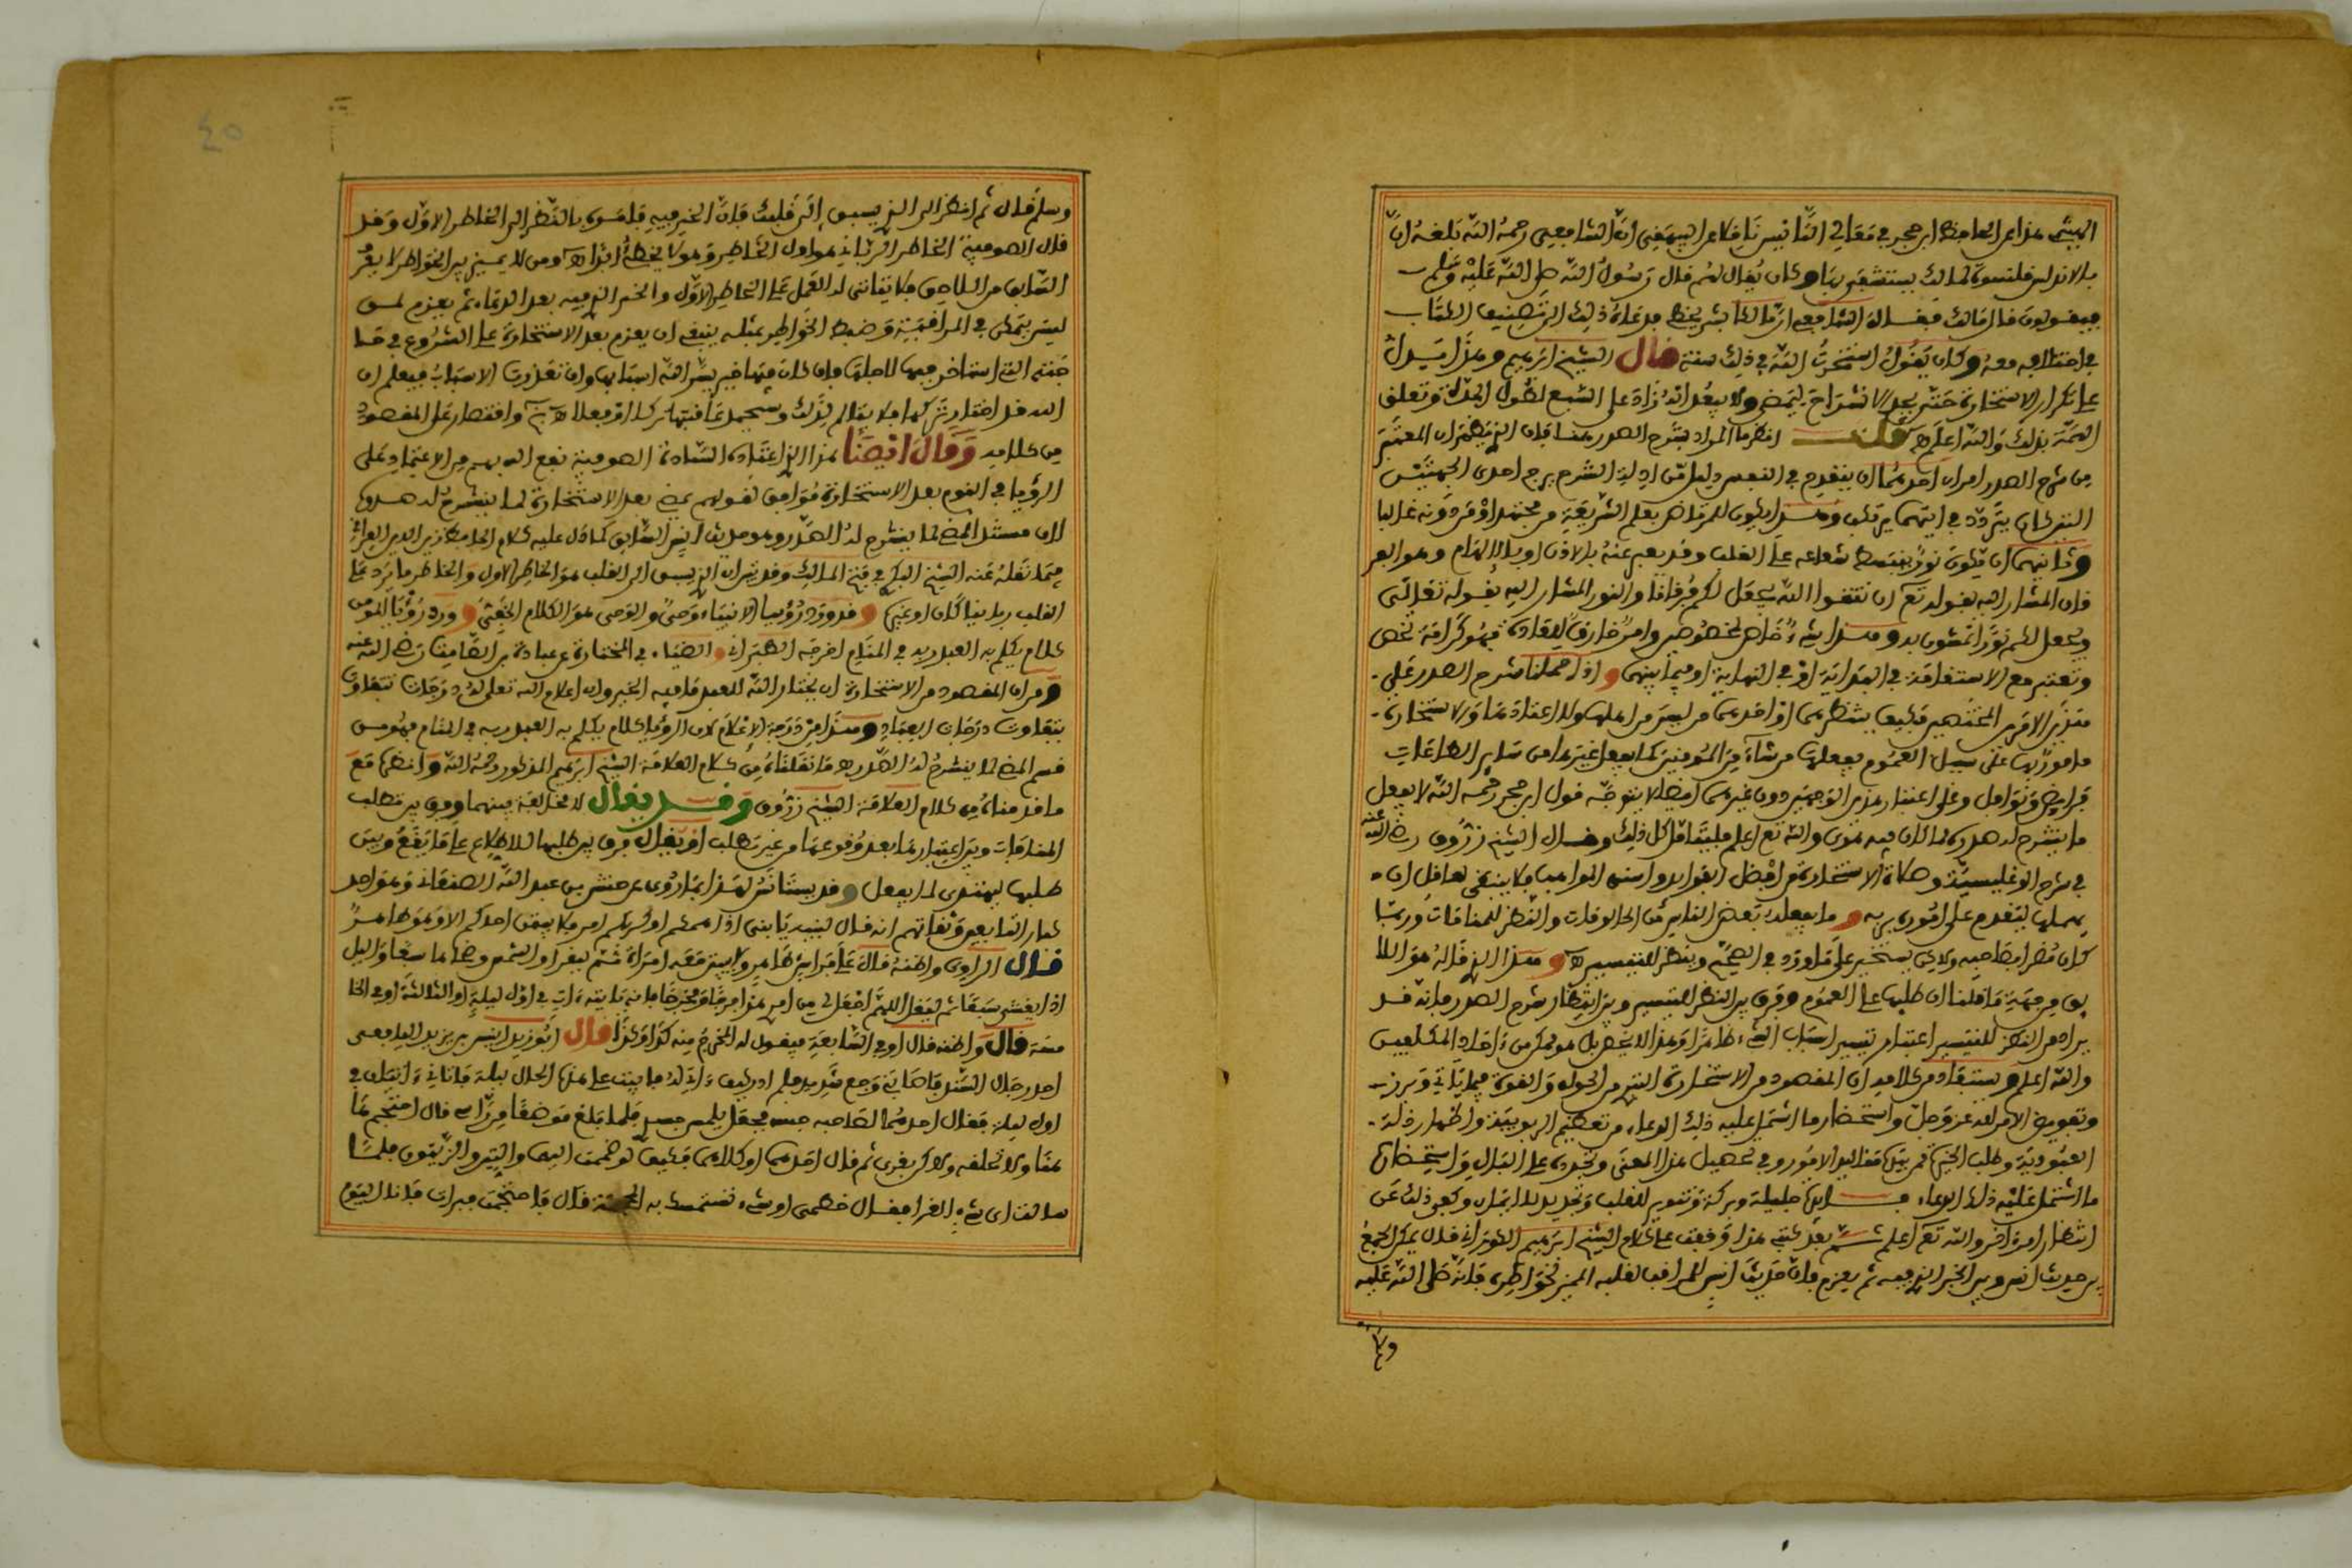 الهيثمي هذا عن الحافظ ابن حجر في معالي التأنيس نافلا عن البيهقي ان الشافعي رحمه الله بلغه ان
بالاندلس قلنسوة لمالك يستشفى بها وكان يقال لهم قال رسول الله صلى الله عليه وسلم
فيقولون قال مالك فقال الشافعي انما مالك بشر يخطئ فدعاه ذلك الى تصنيف الكتاب
في اختلافه معه وكان يقول استخرت الله في ذلك سنة قال الشيخ ابراهيم وهذا يدل
على تكرار الاستخارة حتى يجد الانشراح ليمضي ولا يبعد انه زاد على السبع لطول المدة وتعلق
الهمة بذلك والله اعلم اهـ قلت انظر ما المراد بشرح الصدر هنا فان الذي يظهر ان المعتبر
من شرح الصدر امران احدهما ان ينقدح في النفس دليل من ادلة الشرع يرجح احدى الجهتين
التي كان يتردد في ايتهما يرتكب وهذا يكون للمرتاض بعلم الشريعة من مجتهد او من دونه غالبا
وثانيهما ان يكون نور ينبسط شعاعه على القلب وقد يعبر عنه بالاذن او بالالهام وهو
فان المشار اليه بقوله تعالى ان تتقوا الله يجعل لكم فرقانا والنور المشار اليه بقوله تعالى
ويجعل لكم نورا تمشون به وهذا شيء خاص لخصوص وامر خارق للعادة فهو كرامة تخص
وتعتبر مع الاستقامة في البداية او في النهاية او فيما بينهما واذا حملنا شرح الصدر على
هذين الامرين المختصين فكيف ينتظرهما او احدهما من ليس من اهلهما ولا اعتادهما والاستخارة
مامور بها على سبيل العموم يفعلها من شاء من المومنين كما يفعل غيرها من سائر الطاعات
فرايض ونوافل وعلى اعتبار هذين الوجهين دون غيرهما ايضا لا يتوجه قول ابن حجر رحمه الله لا يفعل
ما ينشرح له صدره لما كان فيه هوى والله تعالى اعلم فليتامل كل ذلك وقال الشيخ زروق رضي الله عنه
في شرح الوغليسية وصلاة الاستخارة من افضل الفوائد واسنى المواهب فلا ينبغي لعاقل ان
يهملها ليقدم على امور ربه وما يفعله بعض الناس من الحالوقات والنظر للمنامات وربما
كان مضرا بصاحبه ولاكن يستخير على ما ورد في الصحيح وينظر للتيسير اهـ وهذا الذي قاله هو اللا
يق من جهة ما قلنا ان طلبها على العموم وفرق بين النظر للتيسير وبين انتظار شرح الصدر فانه قد
يراد من النظر للتيسير اعتبار تيسير اسباب الشيء ظاهرا وهذا لا يخص بل هو ممكن من احاد المكلفين
والله اعلم ويستفاد من كلامه ان المقصود من الاستخارة التبري من الحول والقوة فيما ياتي ويرد
وتفويض الامر لله عز وجل واستحضار ما اشتمل عليه ذلك الدعاء من تعظيم الربوبية واظهار ذلة
العبودية وطلب الخير ممن بيده مقاليد الامور وفي تحصيل هذا المعنى وتجدده على البال واستحضار
ما اشتمل عليه ذلك الدعاء فائدة جليلة وبركة وتنوير للقلب وتجديد للايمان وكفى ذلك عن
انتظار امر اخر والله تعالى اعلم ثم بعد كتبي هذا وقفت على كلام الشيخ ابراهيم الكوراني قال يمكن الجمع
بين حديث انس وبين الخبر الذي فيه ثم يعزم فان حديث انس للمراقب لقلبه المميز لخواطره فانه صلى الله عليه
وسلم
وسلم قال ثم انظر الى الذي يسبق الى قلبك فان الخير فيه فامره بالنظر الى الخاطر الاول وقد
قال الصوفية الخاطر الرباني هو اول الخاطر وهو لا يخطئ ابدا اهـ ومن لا يميز بين الخواطر لا يعرف
السابق من اللاحق فلا يتاتى له العمل على الخاطر الاول والخبر الذي فيه بعد الدعاء ثم يعزم لمن
ليس يتمكن في المراقبة وضبط الخواطر فمثله ينبغي ان يعزم بعد الاستخارة على الشروع في حا
جته التي استخار فيها لاجلها فان كان فيها خير يسر الله اسبابها وان تعذرت الاسباب فيعلم ان
الله قد اختار تركها فلا يتالم لذلك وستحمد عاقبتها تركا او فعلا اهـ واقتصار على المقصود
من كلامه وقال ايضا هذا الذي اعتاده السادة الصوفية نفع الله بهم من الاعتماد على
الرؤيا في النوم بعد الاستخارة موافق لقولهم يمضي بعد الاستخارة لما ينشرح له صدره
لان مستند المضي لما ينشرح له الصدر هو حديث انس السابق كما دل عليه كلام الحافظ زين الدين العراقي
فيما نقله عنه الشيخ البكري في فتح المالك وقد تبين ان الذي يسبق الى القلب هو الخاطر الاول والخاطر ما يرد على
القلب ربانيا كان او غيره وقد ورد رؤيا الانبياء وحي والوحي هو الكلام الخفي وورد رؤيا المومن
كلام يكلم به العبد ربه في المنام اخرجه الطبراني والضياء في المختارة عن عبادة بن الصامت رضي الله عنه
ومن ان المقصود من الاستخارة ان يختار الله للعبد ما فيه الخير وان اعلام الله تعالى له درجات تتفاوت
بتفاوت درجات العباد وهذا من درجة الاعلام لان الرؤيا كلام يكلم به العبد ربه في المنام فهو من
قسم المضي لما ينشرح له الصدر اهـ ما نقلناه من كلام العلامة الشيخ ابراهيم المذكور رحمه الله وانظره مع
ما قدمناه من كلام العلامة الشيخ زروق وقد يقال لا مخالفة بينهما وفرق بين تطلب
المنامات وبين اعتبارها بعد وقوعها من غير تطلب او يقال فرق بين طلبها للاطلاع على ما يقع وبين
طلبها ليهتدى لما يفعل وقد يستانس لهذا بما روي عن حنش بن عبد الله الصنعاني وهو احد
كبار التابعين وثقاتهم انه قال لبنيه يا بني اذا همكم او كربكم امر فلا يبيتن احدكم الا وهو طاهر
قال الراوي واظنه قال على فراش طاهر ولا يبيت معه امراة ثم ليقرا والشمس وضحاها سبعا والليل
اذا يغشى سبعا ثم ليقل اللهم اجعل لي من امري هذا فرجا ومخرجا فانه ياتيه ات في اول ليلة او الثالثة او في الخا
مسة قال واظنه قال او في السابعة فيقول له المخرج منه كذا وكذا قال ابو يزيد انيس بن يزيد اليافعي
احد رجال السند فاصابني وجع شديد فلم ادر كيف اتي له فبت على هذا الحال ليلة فاتاني اثنان في
اول ليلة فقال احدهما لصاحبه جسه فجعل يلمس جسدي فلما بلغ موضعا من راسي قال احتجم ها
هنا ولا تحلقه ولاكن بغرى ثم قال احدهما او كلاهما فكيف لو ضممت اليها والتين والزيتون فلما
سالت اي شيء الغرا فقال خطمي او شيء تستمسك به المحجمة قال فاحتجمت فبرات فانا اليوم